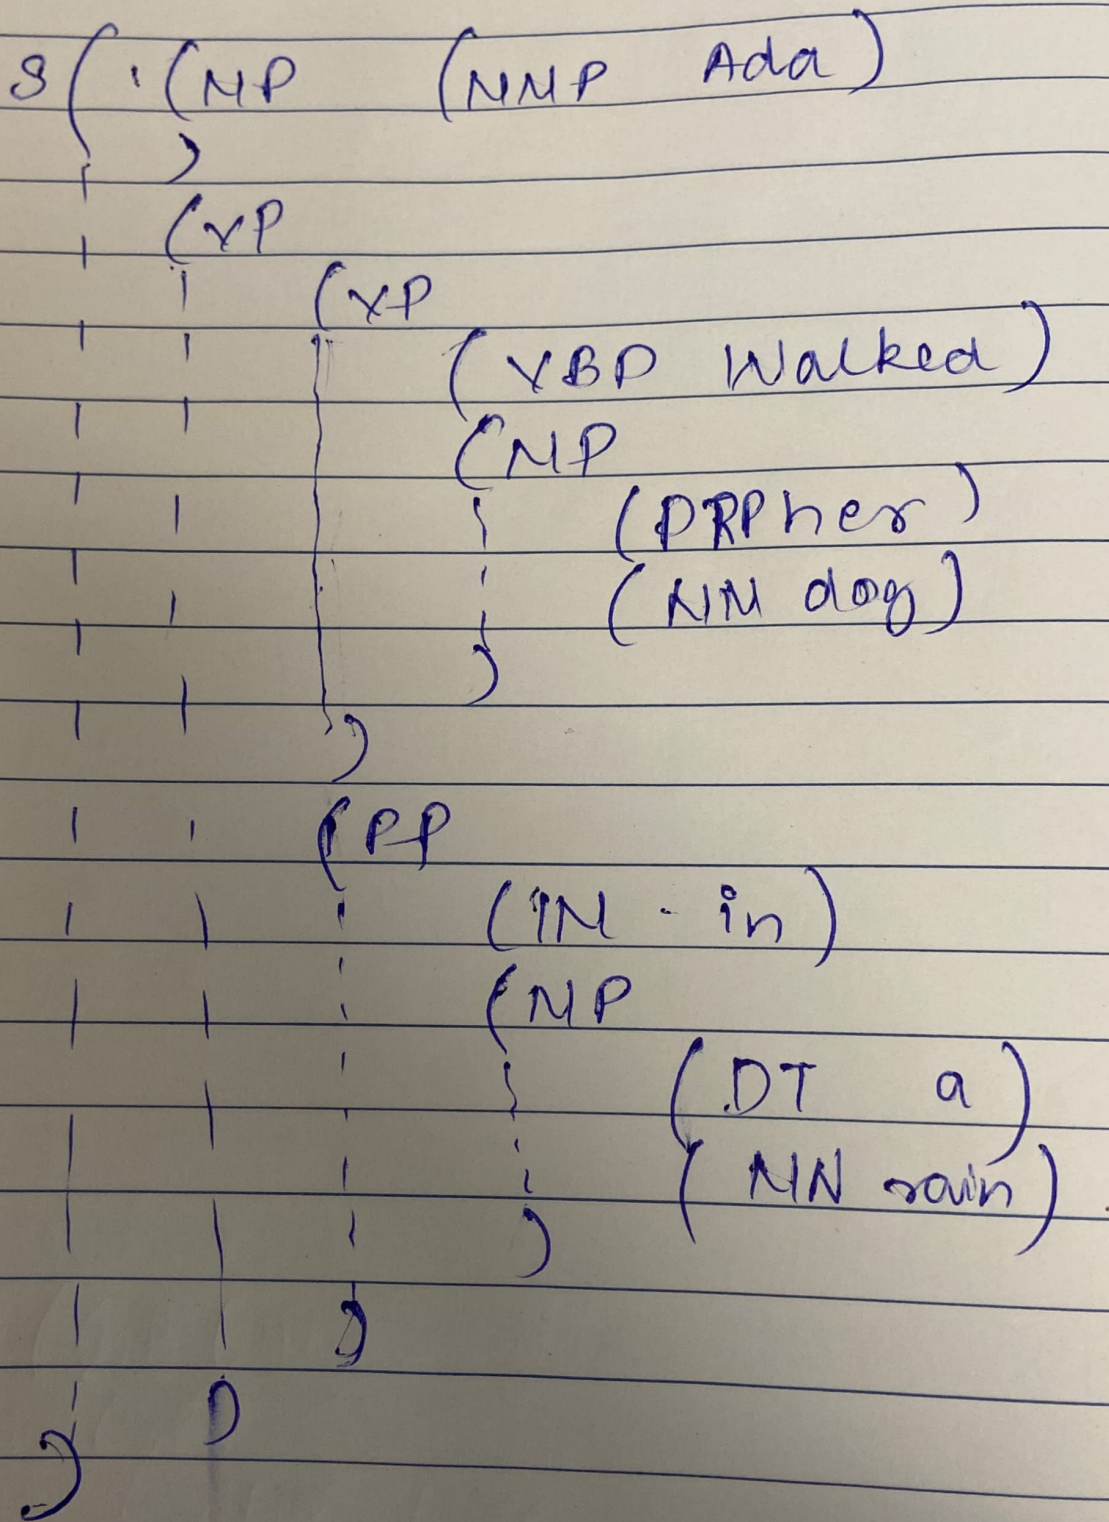 S( (NP (NNP Ada)
)
(VP
(VP
(VBD Walked)
(NP
(PRP her)
(NN dog)
)
)
(PP
(IN - in)
(NP
(DT a)
(NN rain)
)
)
)
)